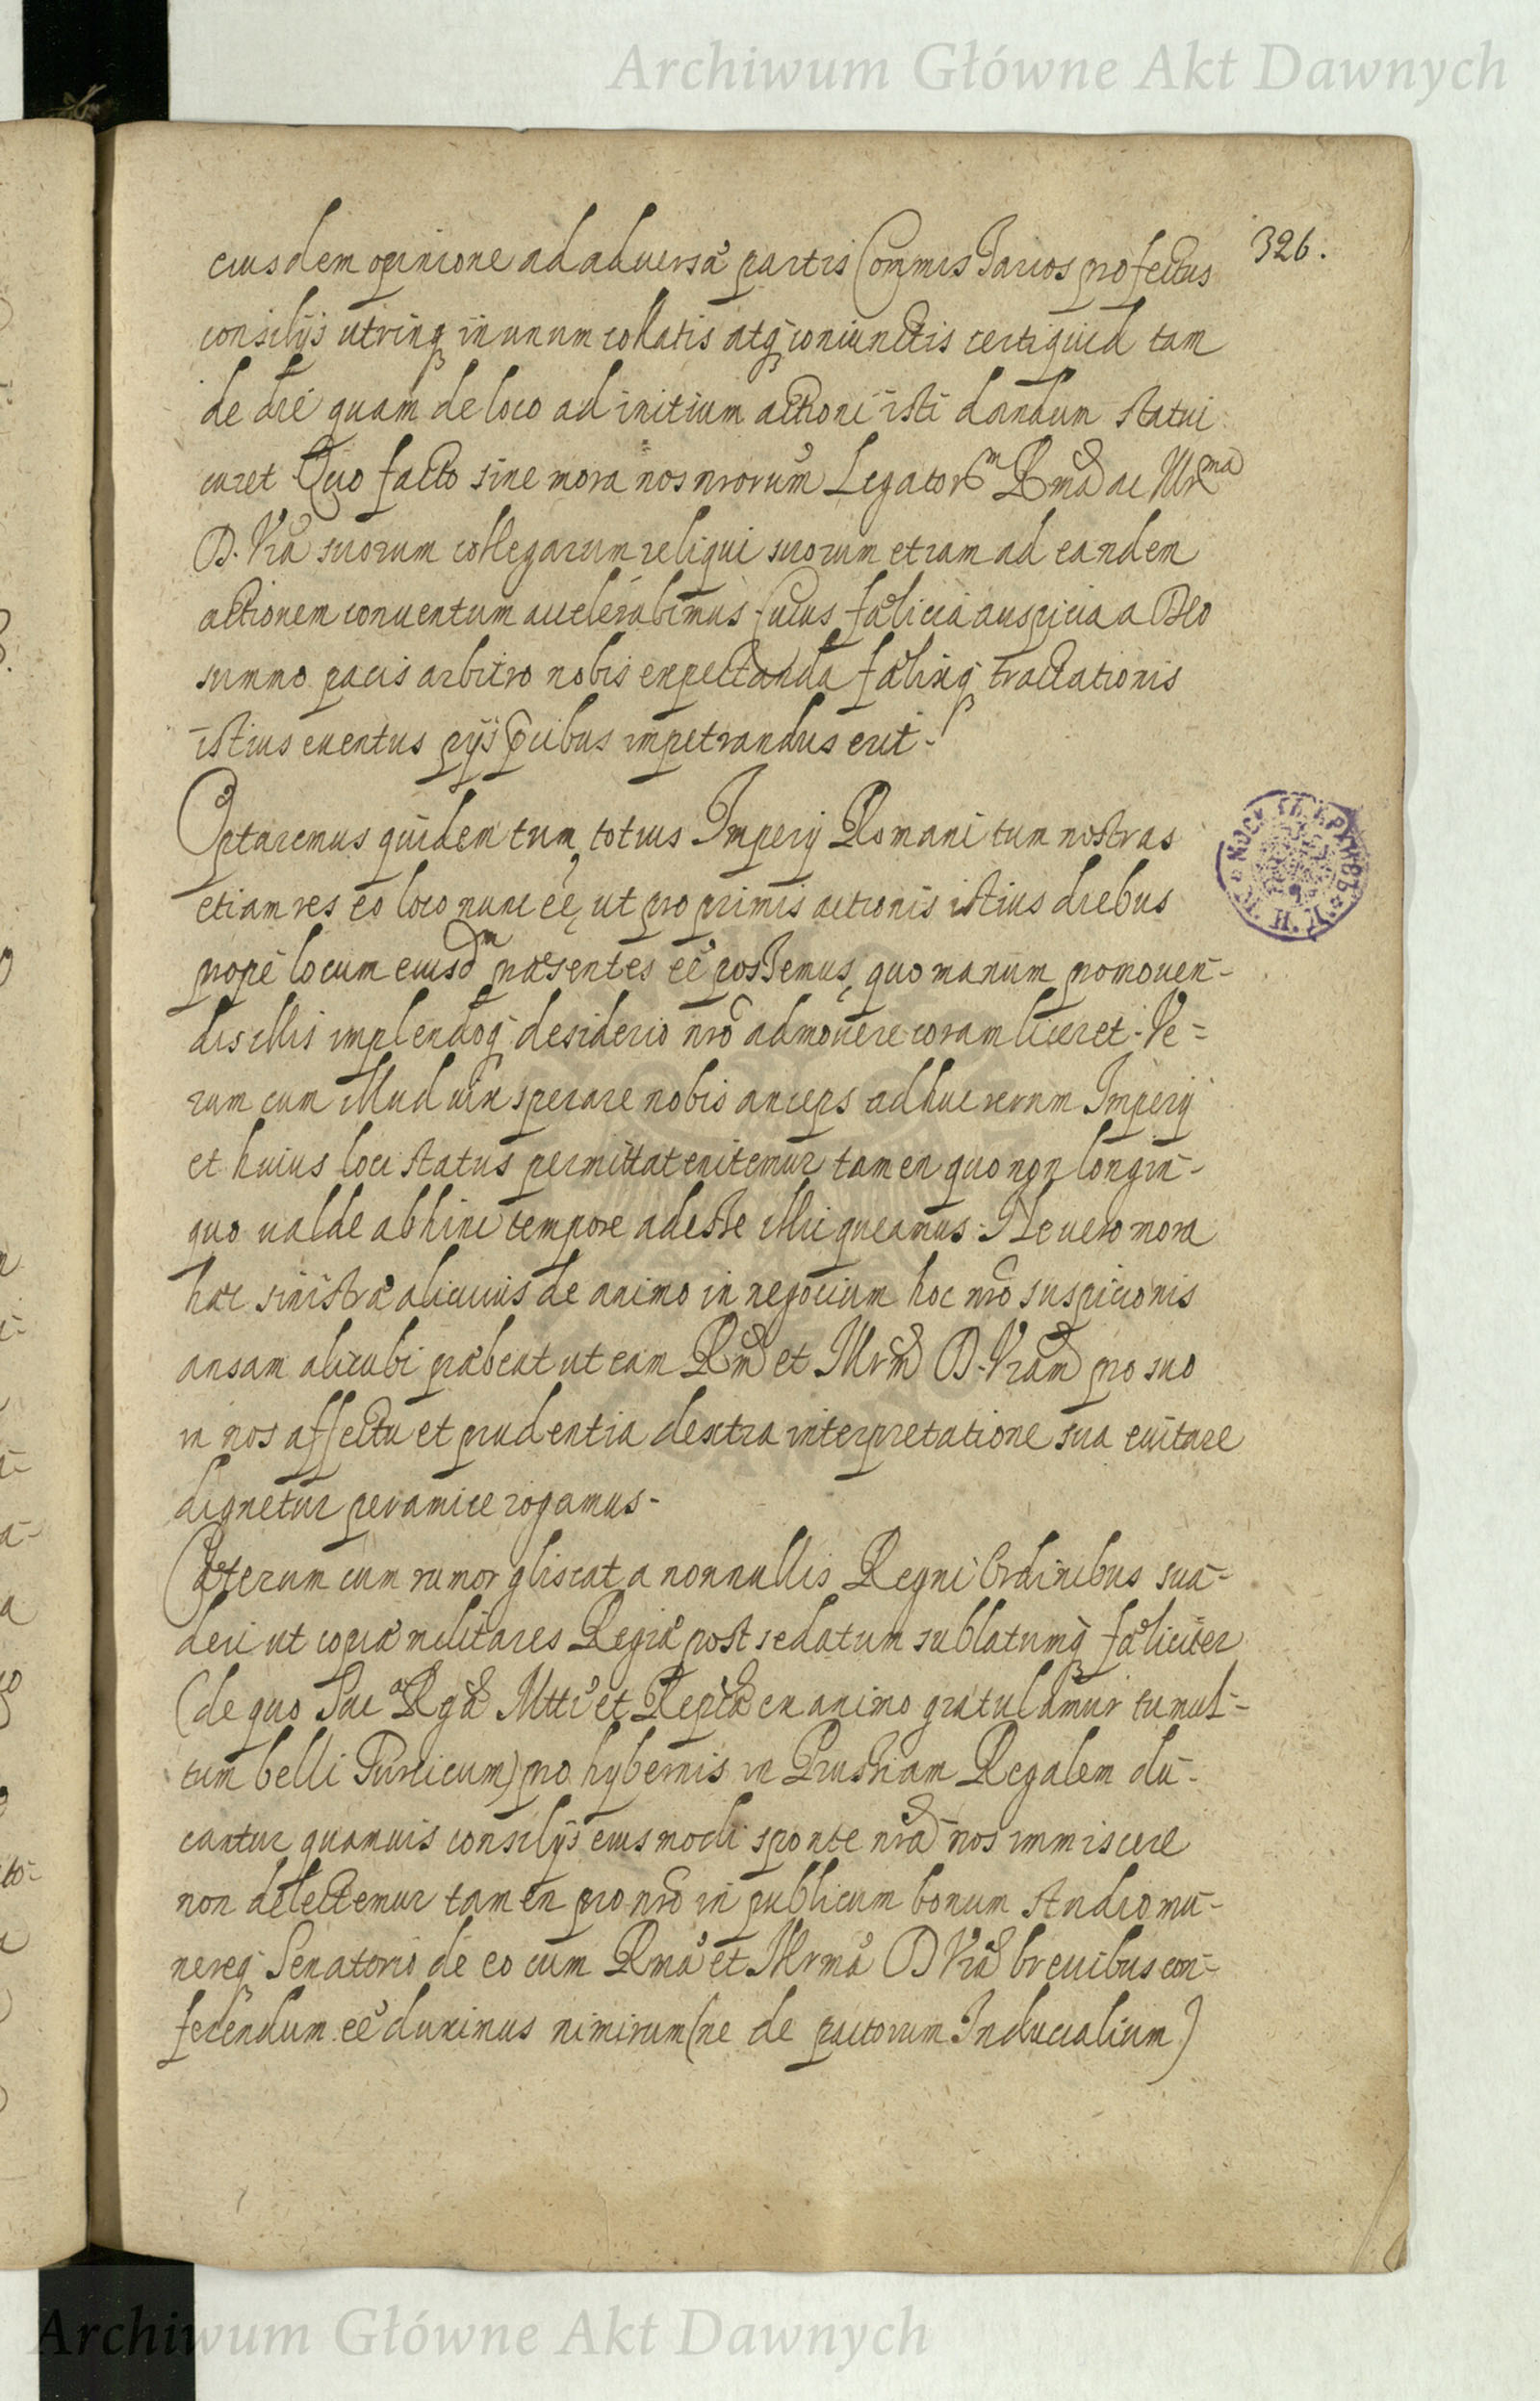 Archiwum Główne Akt Dawnych
326.
eiusdem opinione ad aduersæ partis Commissarios profectus
consilijs utrinq in unum collatis atq coniunctis certiquid tam
de die quam de loco ad initium actioni isti dandum statui
curet. Quo facto sine mora nos nrorum Legator Rma ac Illrma
D. Vra suorum collegarum reliqui suorum etiam ad eandem
actionem conuentum accelerabimus. Cuius fælicia auspicia a Deo
summo pacis arbitro nobis expectanda fælixq tractationis
istius euentus pijs pcibus impetrandus erit.
Optaremus quidem tum totius Imperij Romani tum nostras
etiam res eo loco nunc eê, ut pro primis actionis istius diebus
prope locum eiusdm præsentes eê possemus, quo manum promouen-
dis illis implendoq desiderio nro admouere coram liceret. Ve=
rum cum illud uix sperare nobis anceps adhuc rerum Imperij
et huius loci status permittat enitemur tamen quo non longin-
quo ualde abhinc tempore adesse illic queamus. Ne uero mora
hæc sinistræ alicuius de animo in negocium hoc nro suspicionis
ansam alicubi præbeat ut eam Rm et Illrm D. Vram pro suo
in nos affectu et prudentia dextra interpretatione sua euitare
dignetur peramice rogamus-
Cæterum cum rumor gliscat a nonnullis Regni Ordinibus sua-
deri ut copiæ militares Regiæ post sedatum sublatumq fæliciter
(de quo Sac Rgæ Mtti et Reipcæ ex animo gratulamur tumul-
tum belli Turcicum) pro hybernis in Prussiam Regalem du-
cantur quamuis consilijs eiusmodi sponte nra nos immiscere
non delectemur tamen pro nro in publicum bonum studio mu-
nereq Senatorio de eo cum Rma et Illrma D Vra breuibus con-
ferendum eê duximus nimirum (ne de pactorum Inducialium)
Archiwum Główne Akt Dawnych